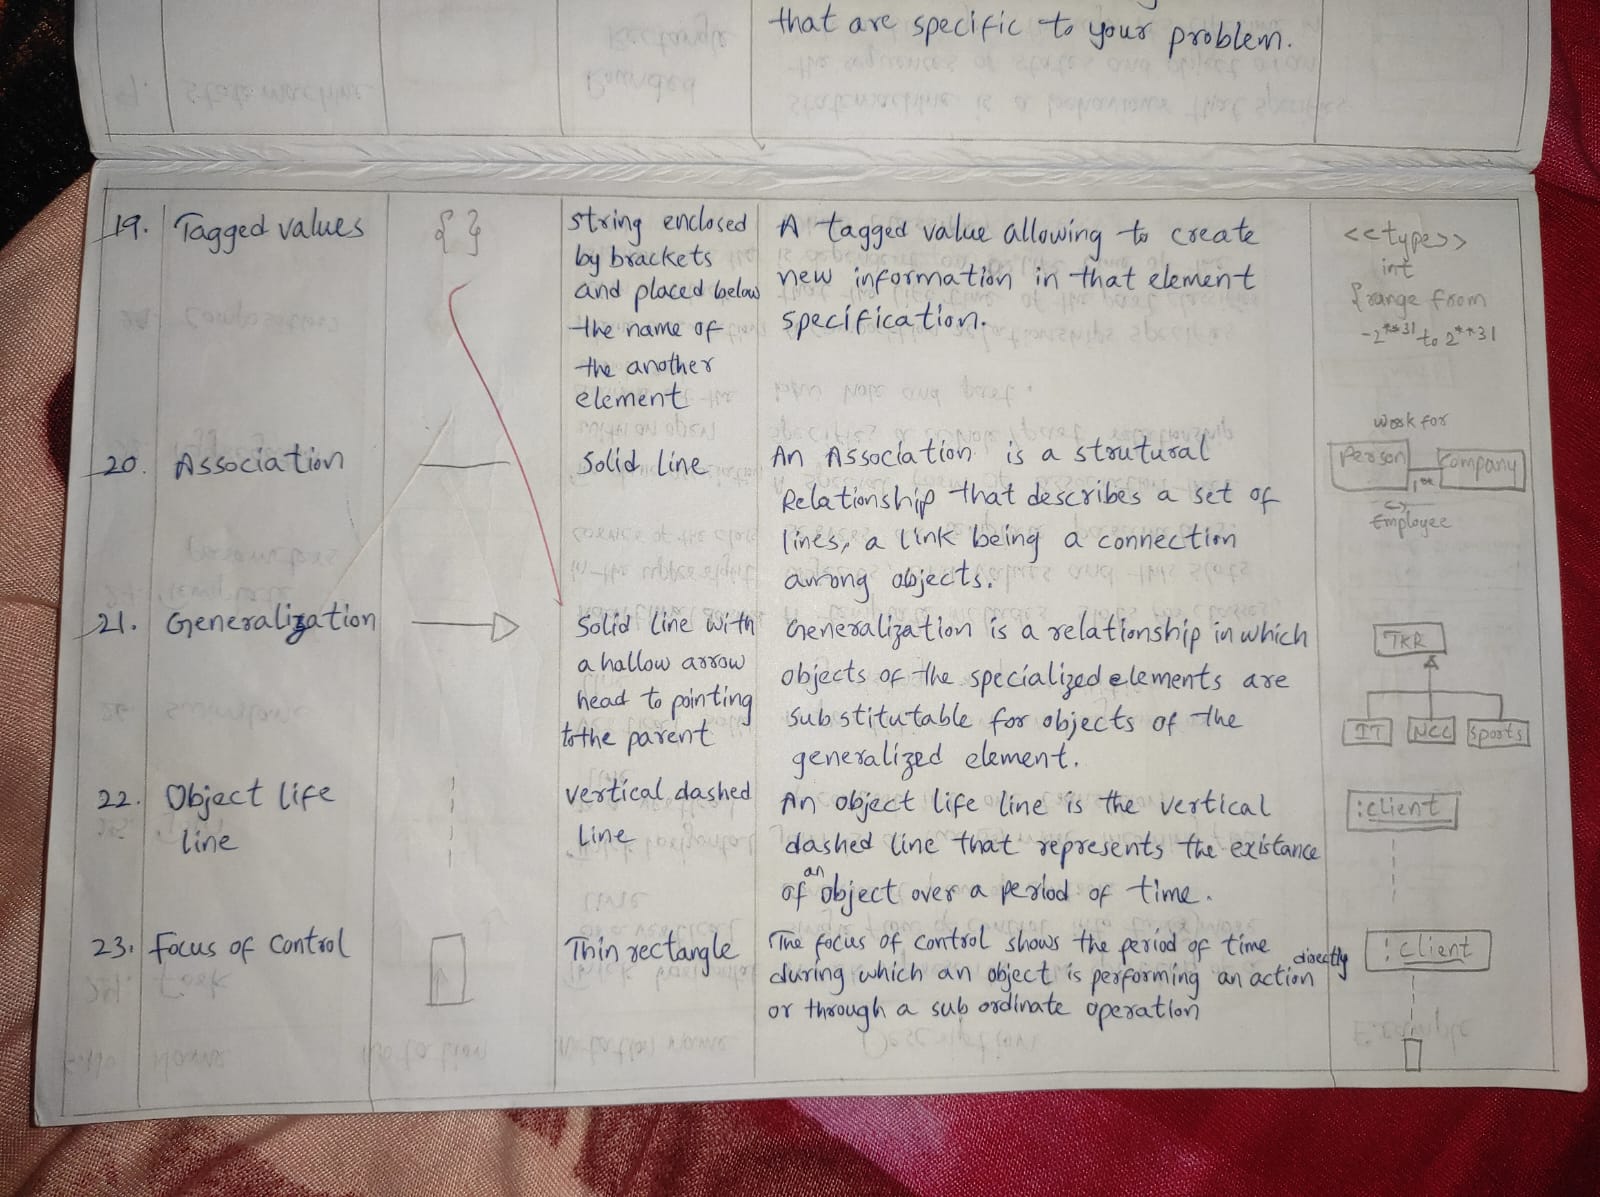 that are specific to your problem.
19. Tagged values { } string enclosed by brackets and placed below the name of the another element
A tagged value allowing to create
new information in that element
specification.
<<type>>
int
{range from
-2**31 to 2**31
20. Association Solid line
An Association is a strutural
Relationship that describes a set of
lines, a link being a connection
among objects.
Work for
Person Company
1 **
Employee
21. Generalization
Solid line with
a hallow arrow
head to pointing
to the parent
Generalization is a relationship in which
objects of the specialized elements are
substitutable for objects of the
generalized element.
TKR
IT NCC Sports
22. Object life
line
vertical dashed
line
An object life line is the vertical
dashed line that represents the existance
of an object over a period of time.
:client
23. Focus of control
Thin rectangle
The focus of control shows the period of time
during which an object is performing an action directly
or through a sub ordinate operation
: client